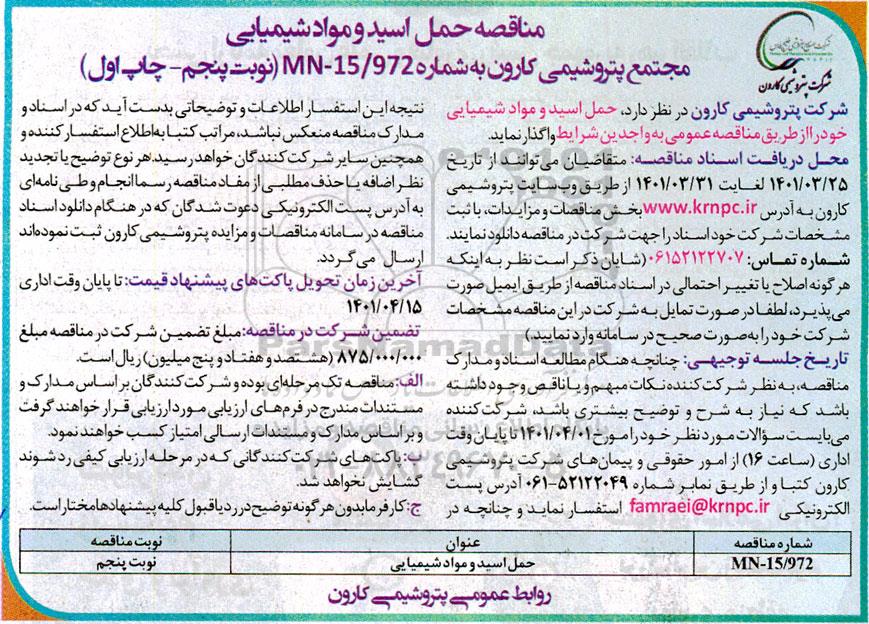 مناقصه حمل اسید و مواد شیمیایی
مجتمع پتروشیمی کارون به شماره MN-15/972 (نوبت پنجم - چاپ اول)
شرکت پتروشیمی کارون
شرکت پتروشیمی کارون در نظر دارد، حمل اسید و مواد شیمیایی
خود را از طریق مناقصه عمومی به واجدین شرایط واگذار نماید.
محل دریافت اسناد مناقصه: متقاضیان می‌توانند از تاریخ
۱۴۰۱/۰۳/۲۵ لغایت ۱۴۰۱/۰۳/۳۱ از طریق وب سایت پتروشیمی
کارون به آدرس www.krnpc.ir بخش مناقصات و مزایدات، با ثبت
مشخصات شرکت خود اسناد را جهت شرکت در مناقصه دانلود نمایند.
شماره تماس: ۰۶۱۵۲۱۲۲۷۰۷ (شایان ذکر است نظر به اینکه
هر گونه اصلاح یا تغییر احتمالی در اسناد مناقصه از طریق ایمیل صورت
می‌پذیرد، لطفا در صورت تمایل به شرکت در این مناقصه مشخصات
شرکت خود را به صورت صحیح در سامانه وارد نمایید)
تاریخ جلسه توجیهی: چنانچه هنگام مطالعه اسناد و مدارک
مناقصه، به نظر شرکت کننده نکات مبهم و یا ناقص وجود داشته
باشد که نیاز به شرح و توضیح بیشتری باشد، شرکت کننده
می‌بایست سؤالات مورد نظر خود را مورخ ۱۴۰۱/۰۴/۰۱ تا پایان وقت
اداری (ساعت ۱۶) از امور حقوقی و پیمان‌های شرکت پتروشیمی
کارون کتبا و از طریق نمابر شماره ۵۲۱۲۲۰۴۹-۰۶۱ آدرس پست
الکترونیکی famraei@krnpc.ir استفسار نماید و چنانچه در
نتیجه این استفسار اطلاعات و توضیحاتی بدست آید که در اسناد و
مدارک مناقصه منعکس نباشد، مراتب کتبا به اطلاع استفسار کننده و
همچنین سایر شرکت کنندگان خواهد رسید. هر نوع توضیح یا تجدید
نظر اضافه یا حذف مطلبی از مفاد مناقصه رسما انجام و طی نامه‌ای
به آدرس پست الکترونیکی دعوت شدگان که در هنگام دانلود اسناد
مناقصه در سامانه مناقصات و مزایده پتروشیمی کارون ثبت نموده‌اند
ارسال می‌گردد.
آخرین زمان تحویل پاکت‌های پیشنهاد قیمت: تا پایان وقت اداری
۱۴۰۱/۰۴/۱۵
تضمین شرکت در مناقصه: مبلغ تضمین شرکت در مناقصه مبلغ
۸۷۵/۰۰۰/۰۰۰ (هشتصد و هفتاد و پنج میلیون) ریال است.
الف: مناقصه تک مرحله‌ای بوده و شرکت کنندگان بر اساس مدارک و
مستندات مندرج در فرم‌های ارزیابی مورد ارزیابی قرار خواهند گرفت
و بر اساس مدارک و مستندات ارسالی امتیاز کسب خواهند نمود.
ب: پاکت‌های شرکت کنندگانی که در مرحله ارزیابی کیفی رد شوند
گشایش نخواهد شد.
ج: کارفرما بدون هر گونه توضیح در رد یا قبول کلیه پیشنهادها مختار است.
شماره مناقصه عنوان نوبت مناقصه
MN-15/972 حمل اسید و مواد شیمیایی نوبت پنجم
روابط عمومی پتروشیمی کارون
ParsNamadData